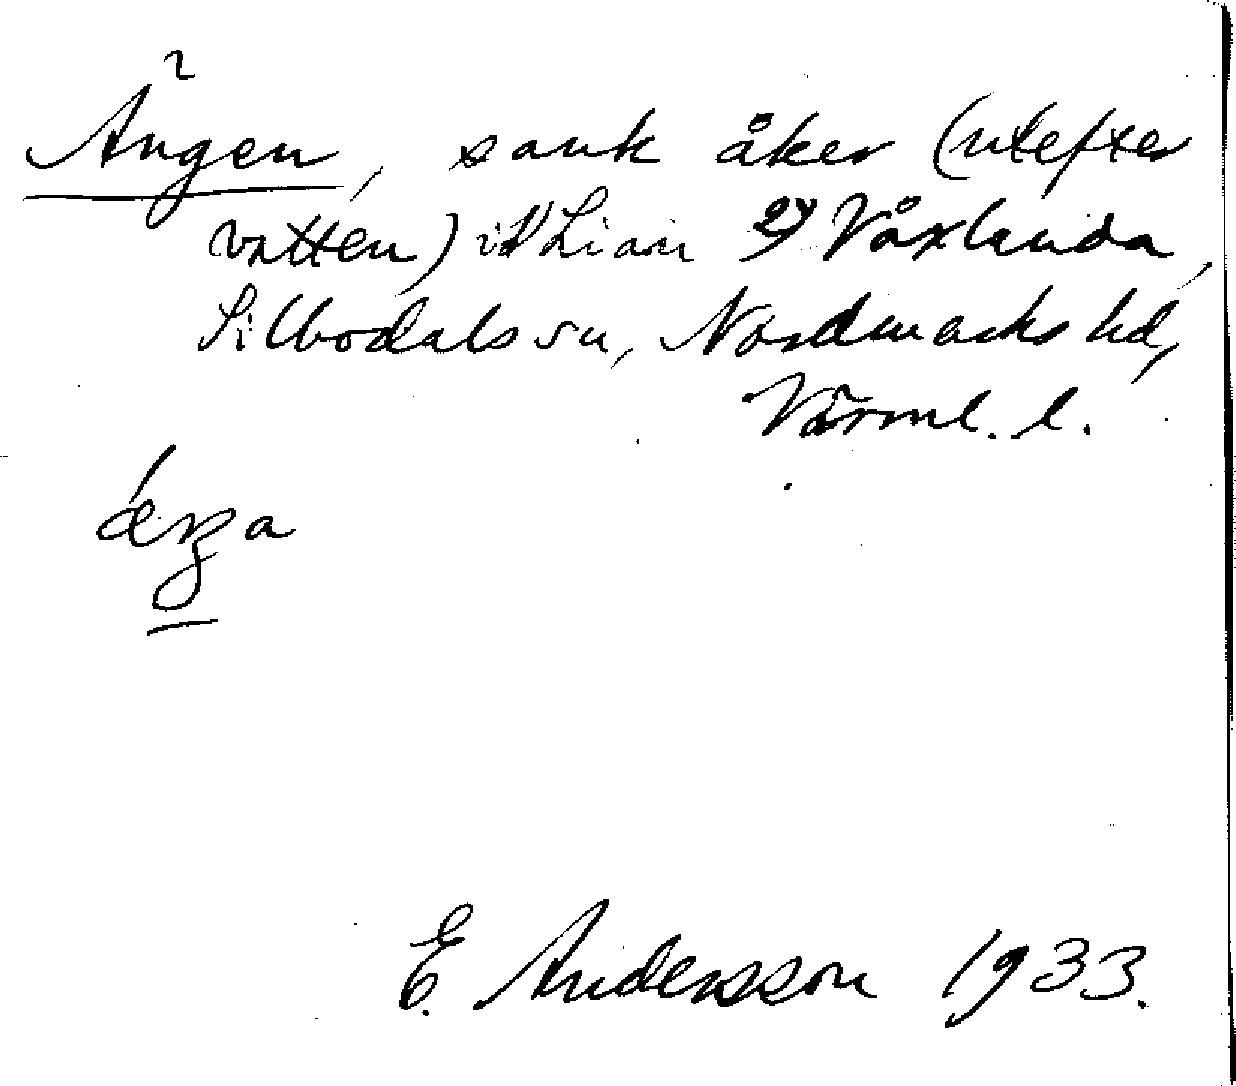 Ängen, sank åker (utefter
vatten) i Lian 24 Våxlunda,
Silbodals sn, Nordmarks hd,
Värml. l.
E. Andersson 1933.